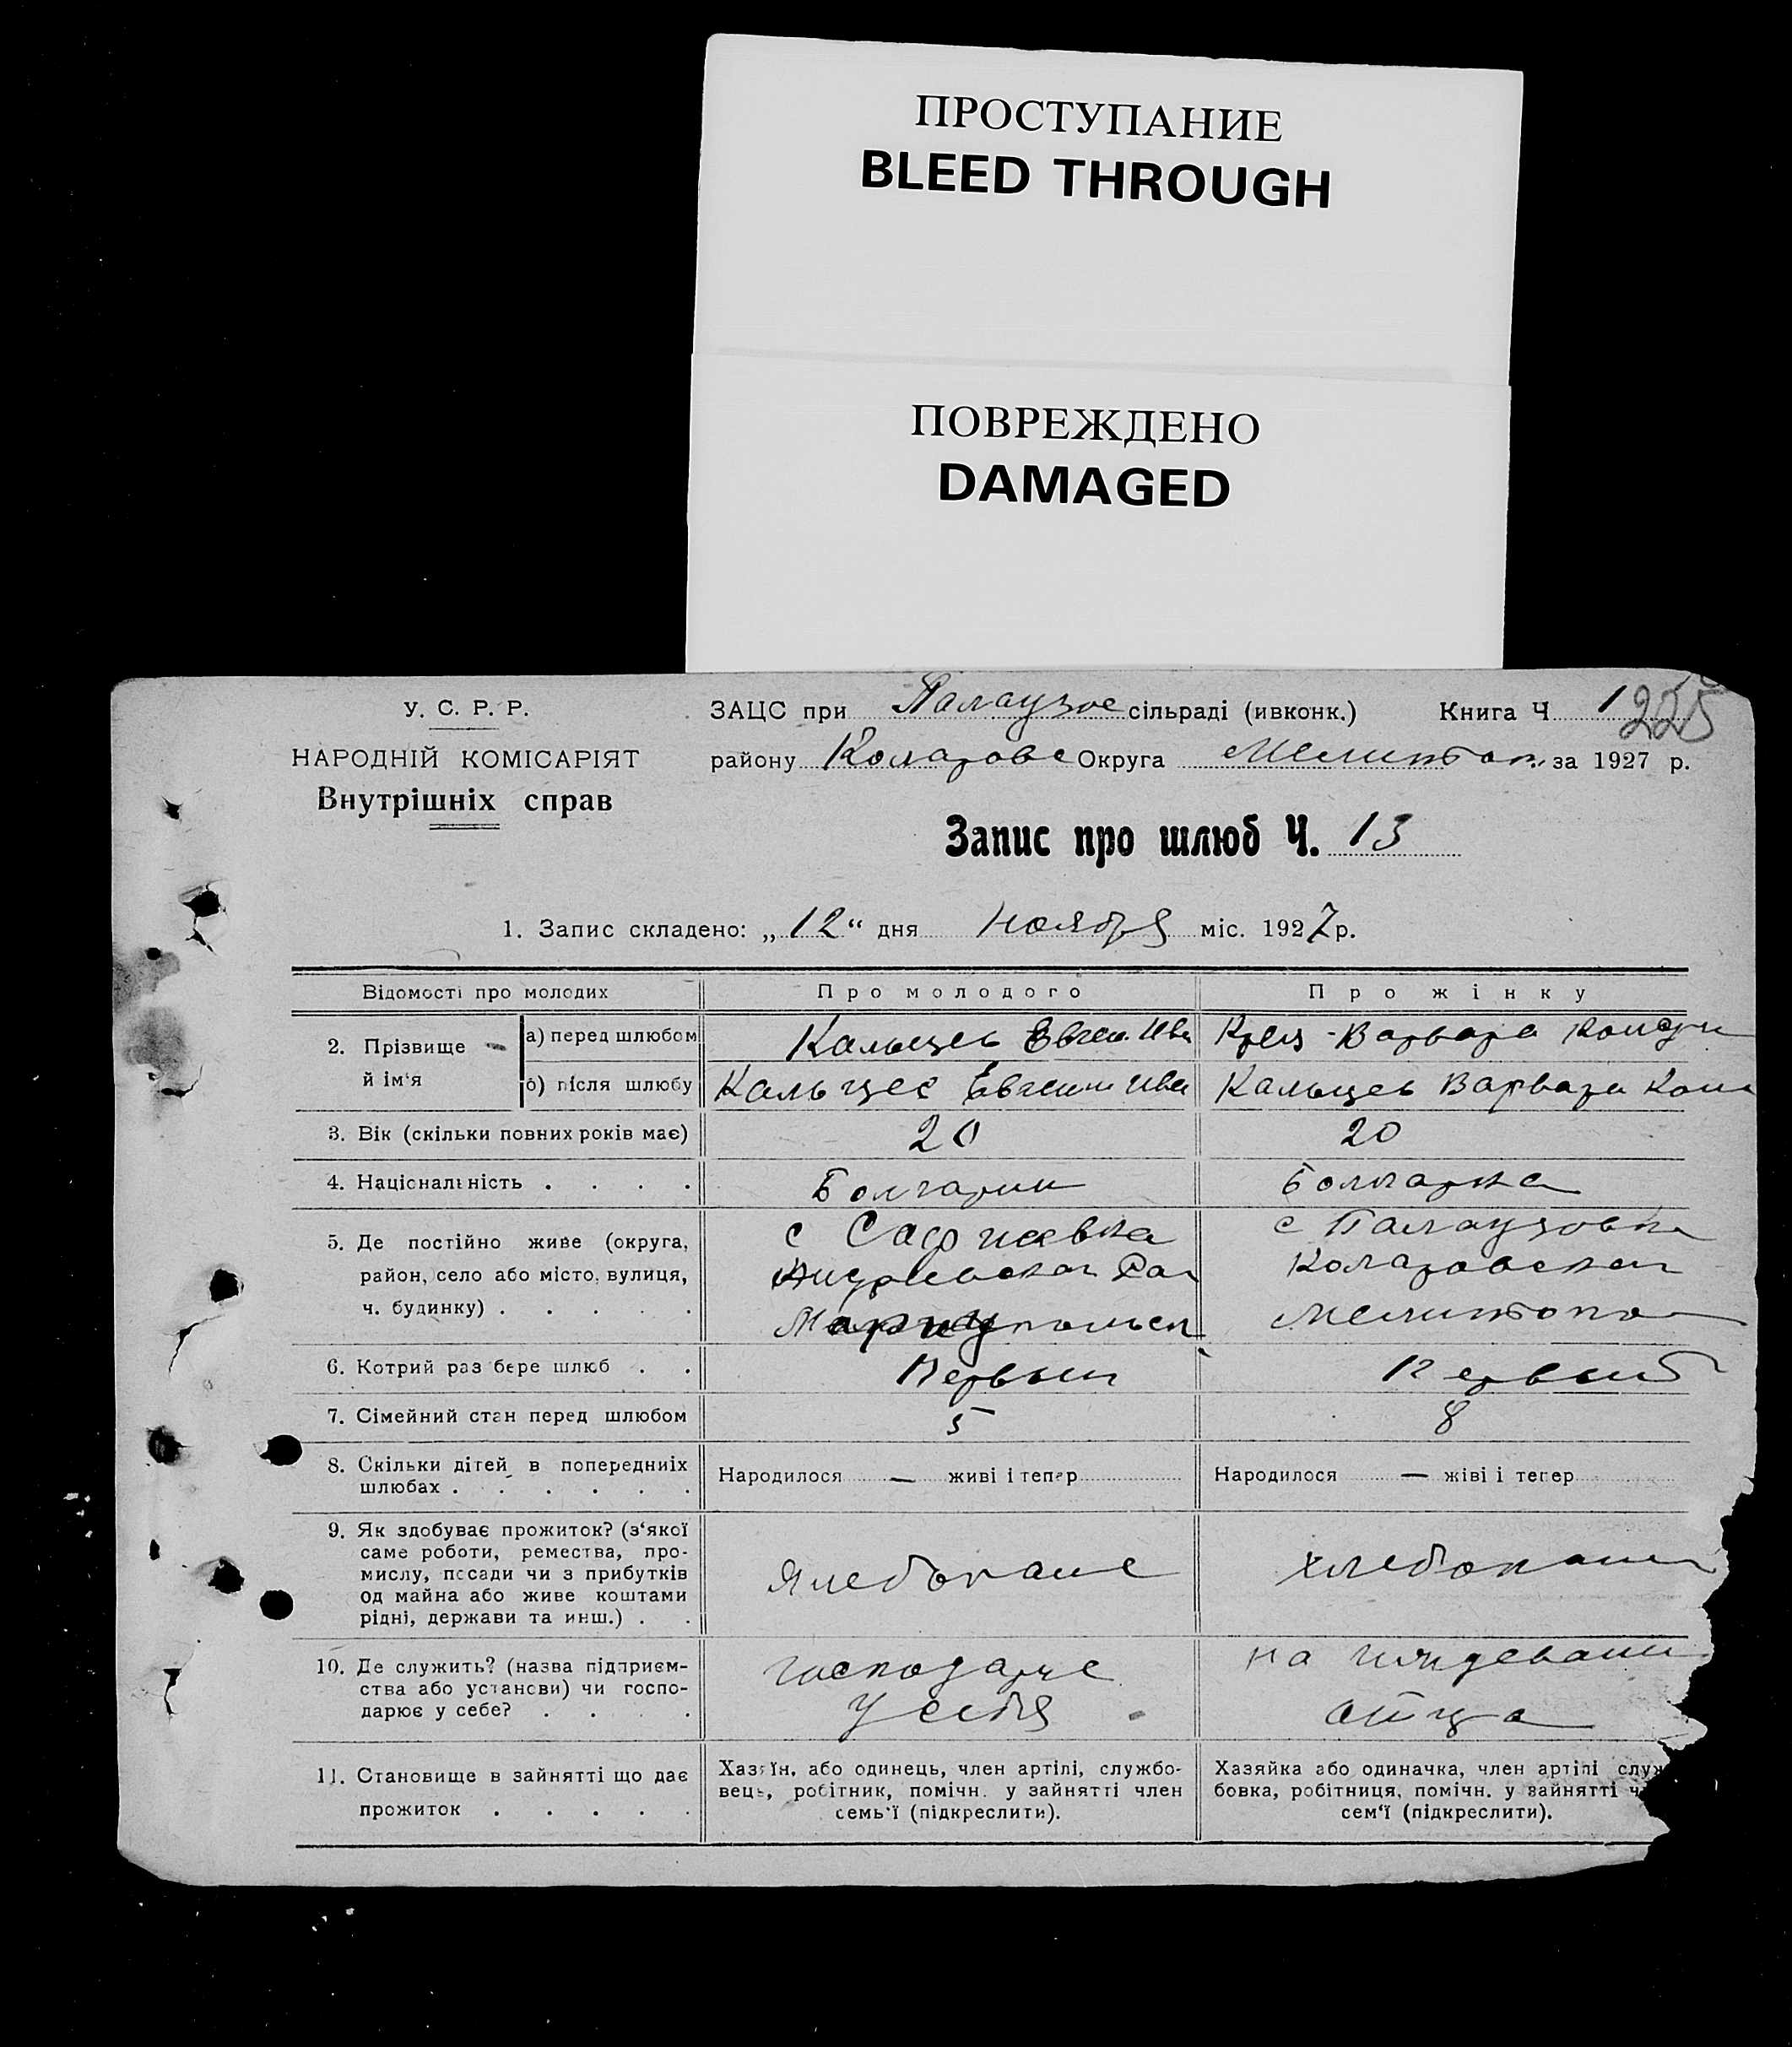 ПРОСТУПАНИЕ
BLEED THROUGH
ПОВРЕЖДЕНО
DAMAGED
У. С. Р. Р.
НАРОДНІЙ КОМІСАРІЯТ
Внутрішніх справ
ЗАЦС при Палаузов сільраді (ивконк.) Книга Ч 1
225
району Коларовс Округа Мелитоп. за 1927 р.
Запис про шлюб Ч. 13
1. Запис складено: „12“ дня ноября міс. 1927 р.
Відомості про молодих Про молодого Про жінку
2. Прізвище й ім'я
а) перед шлюбом Кальчев Евген. Ива Варвара
б) після шлюбу Кальчев Евгений Ива Кальчев Варвара Кон
3. Вік (скільки повних років має) 20 20
4. Національність . . . . Болгарин Болгарка
5. Де постійно живе (округа, район, село або місто, вулиця, ч. будинку) . . . . .
с Софиевка
Андреевской Рай
Мариупольск
с Палаузовка
Коларовской
Мелитопо
6. Котрий раз бере шлюб . . Первый Первый
7. Сімейний стан перед шлюбом 5 8
8. Скільки дітей в попередниіх шлюбах . . . . . .
Народилося — живі і тепер
Народилося — жіві і тепер
9. Як здобуває прожиток? (з'якої
саме роботи, ремества, про-
мислу, посади чи з прибутків
од майна або живе коштами
рідні, держави та инш.) . .
Хлебопаше
хлебопаш
10. Де служить? (назва підприєм-
ства або установи) чи госпо-
дарює у себе? . . . .
господарує
у себя
на иждевани
отца
11. Становище в зайнятті що дає
прожиток . . . . .
Хазяїн, або одинець, член артілі, службо-
вець, робітник, помічн. у зайнятті член
семь'ї (підкреслити).
Хазяйка або одиначка, член артілі служ
бовка, робітниця, помічн. у зайнятті ч
сем'ї (підкреслити).